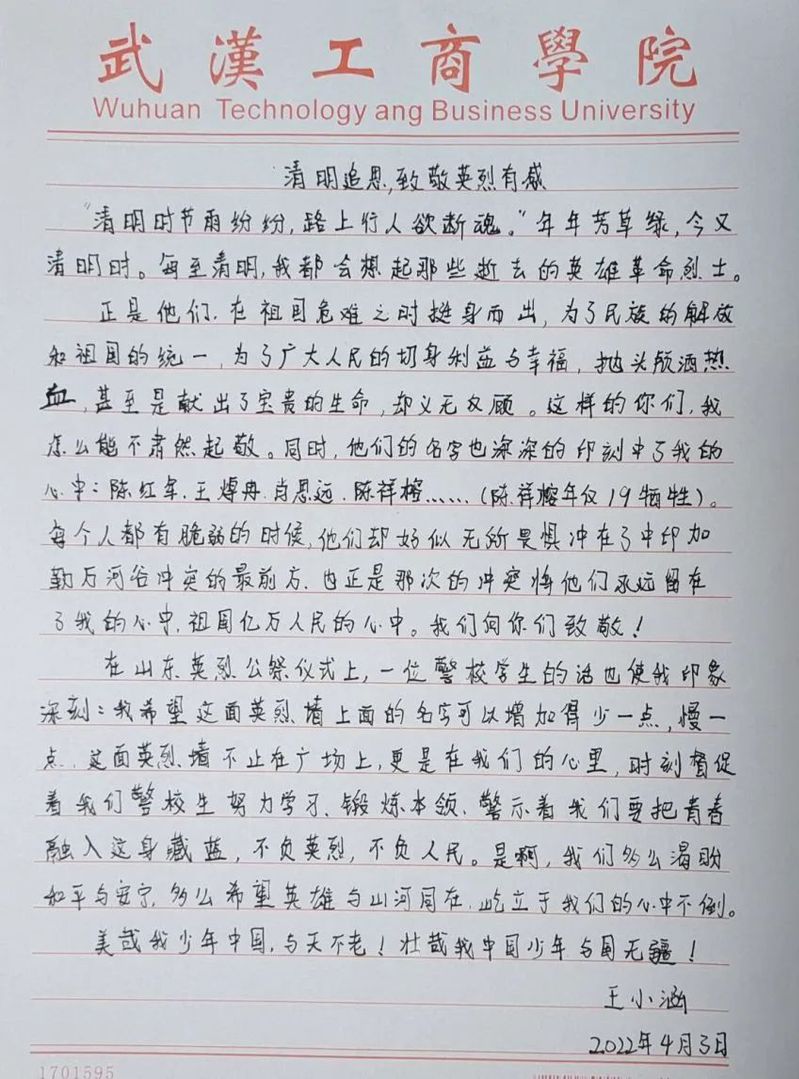 武漢工商學院
Wuhuan Technology ang Business University
清明追思,致敬英烈有感
“清明时节雨纷纷,路上行人欲断魂。”年年芳草绿,今又
清明时。每至清明,我都会想起那些逝去的英雄革命烈士。
正是他们,在祖国危难之时挺身而出,为了民族的解放
和祖国的统一,为了广大人民的切身利益与幸福,抛头颅洒热
血,甚至是献出了宝贵的生命,却义无反顾。这样的你们,我
怎么能不肃然起敬。同时,他们的名字也深深的印刻中了我的
心中:陈红军、王焯冉、肖思远、陈祥榕……(陈祥榕年仅19牺牲)。
每个人都有脆弱的时候,他们却好似无所畏惧冲在了中印加
勒万河谷冲突的最前方,也正是那次的冲突将他们永远留在
了我的心中,祖国亿万人民的心中。我们向你们致敬!
在山东英烈公祭仪式上,一位警校学生的话也使我印象
深刻:我希望这面英烈墙上面的名字可以增加得少一点,慢一
点,这面英烈墙不止在广场上,更是在我们的心里,时刻督促
着我们警校生努力学习、锻炼本领、警示着我们要把青春
融入这身藏蓝,不负英烈,不负人民。是啊,我们多么渴盼
和平与安宁,多么希望英雄与山河同在,屹立于我们的心中不倒。
美哉我少年中国,与天不老!壮哉我中国少年与国无疆!
王小涵
2022年4月3日
1701595